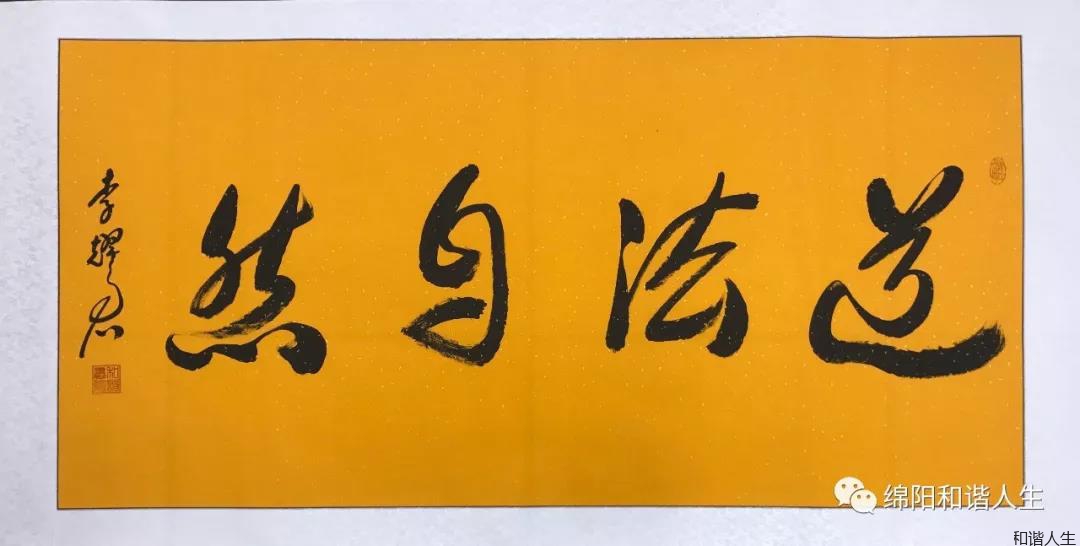 道法自然
绵阳和谐人生
和谐人生